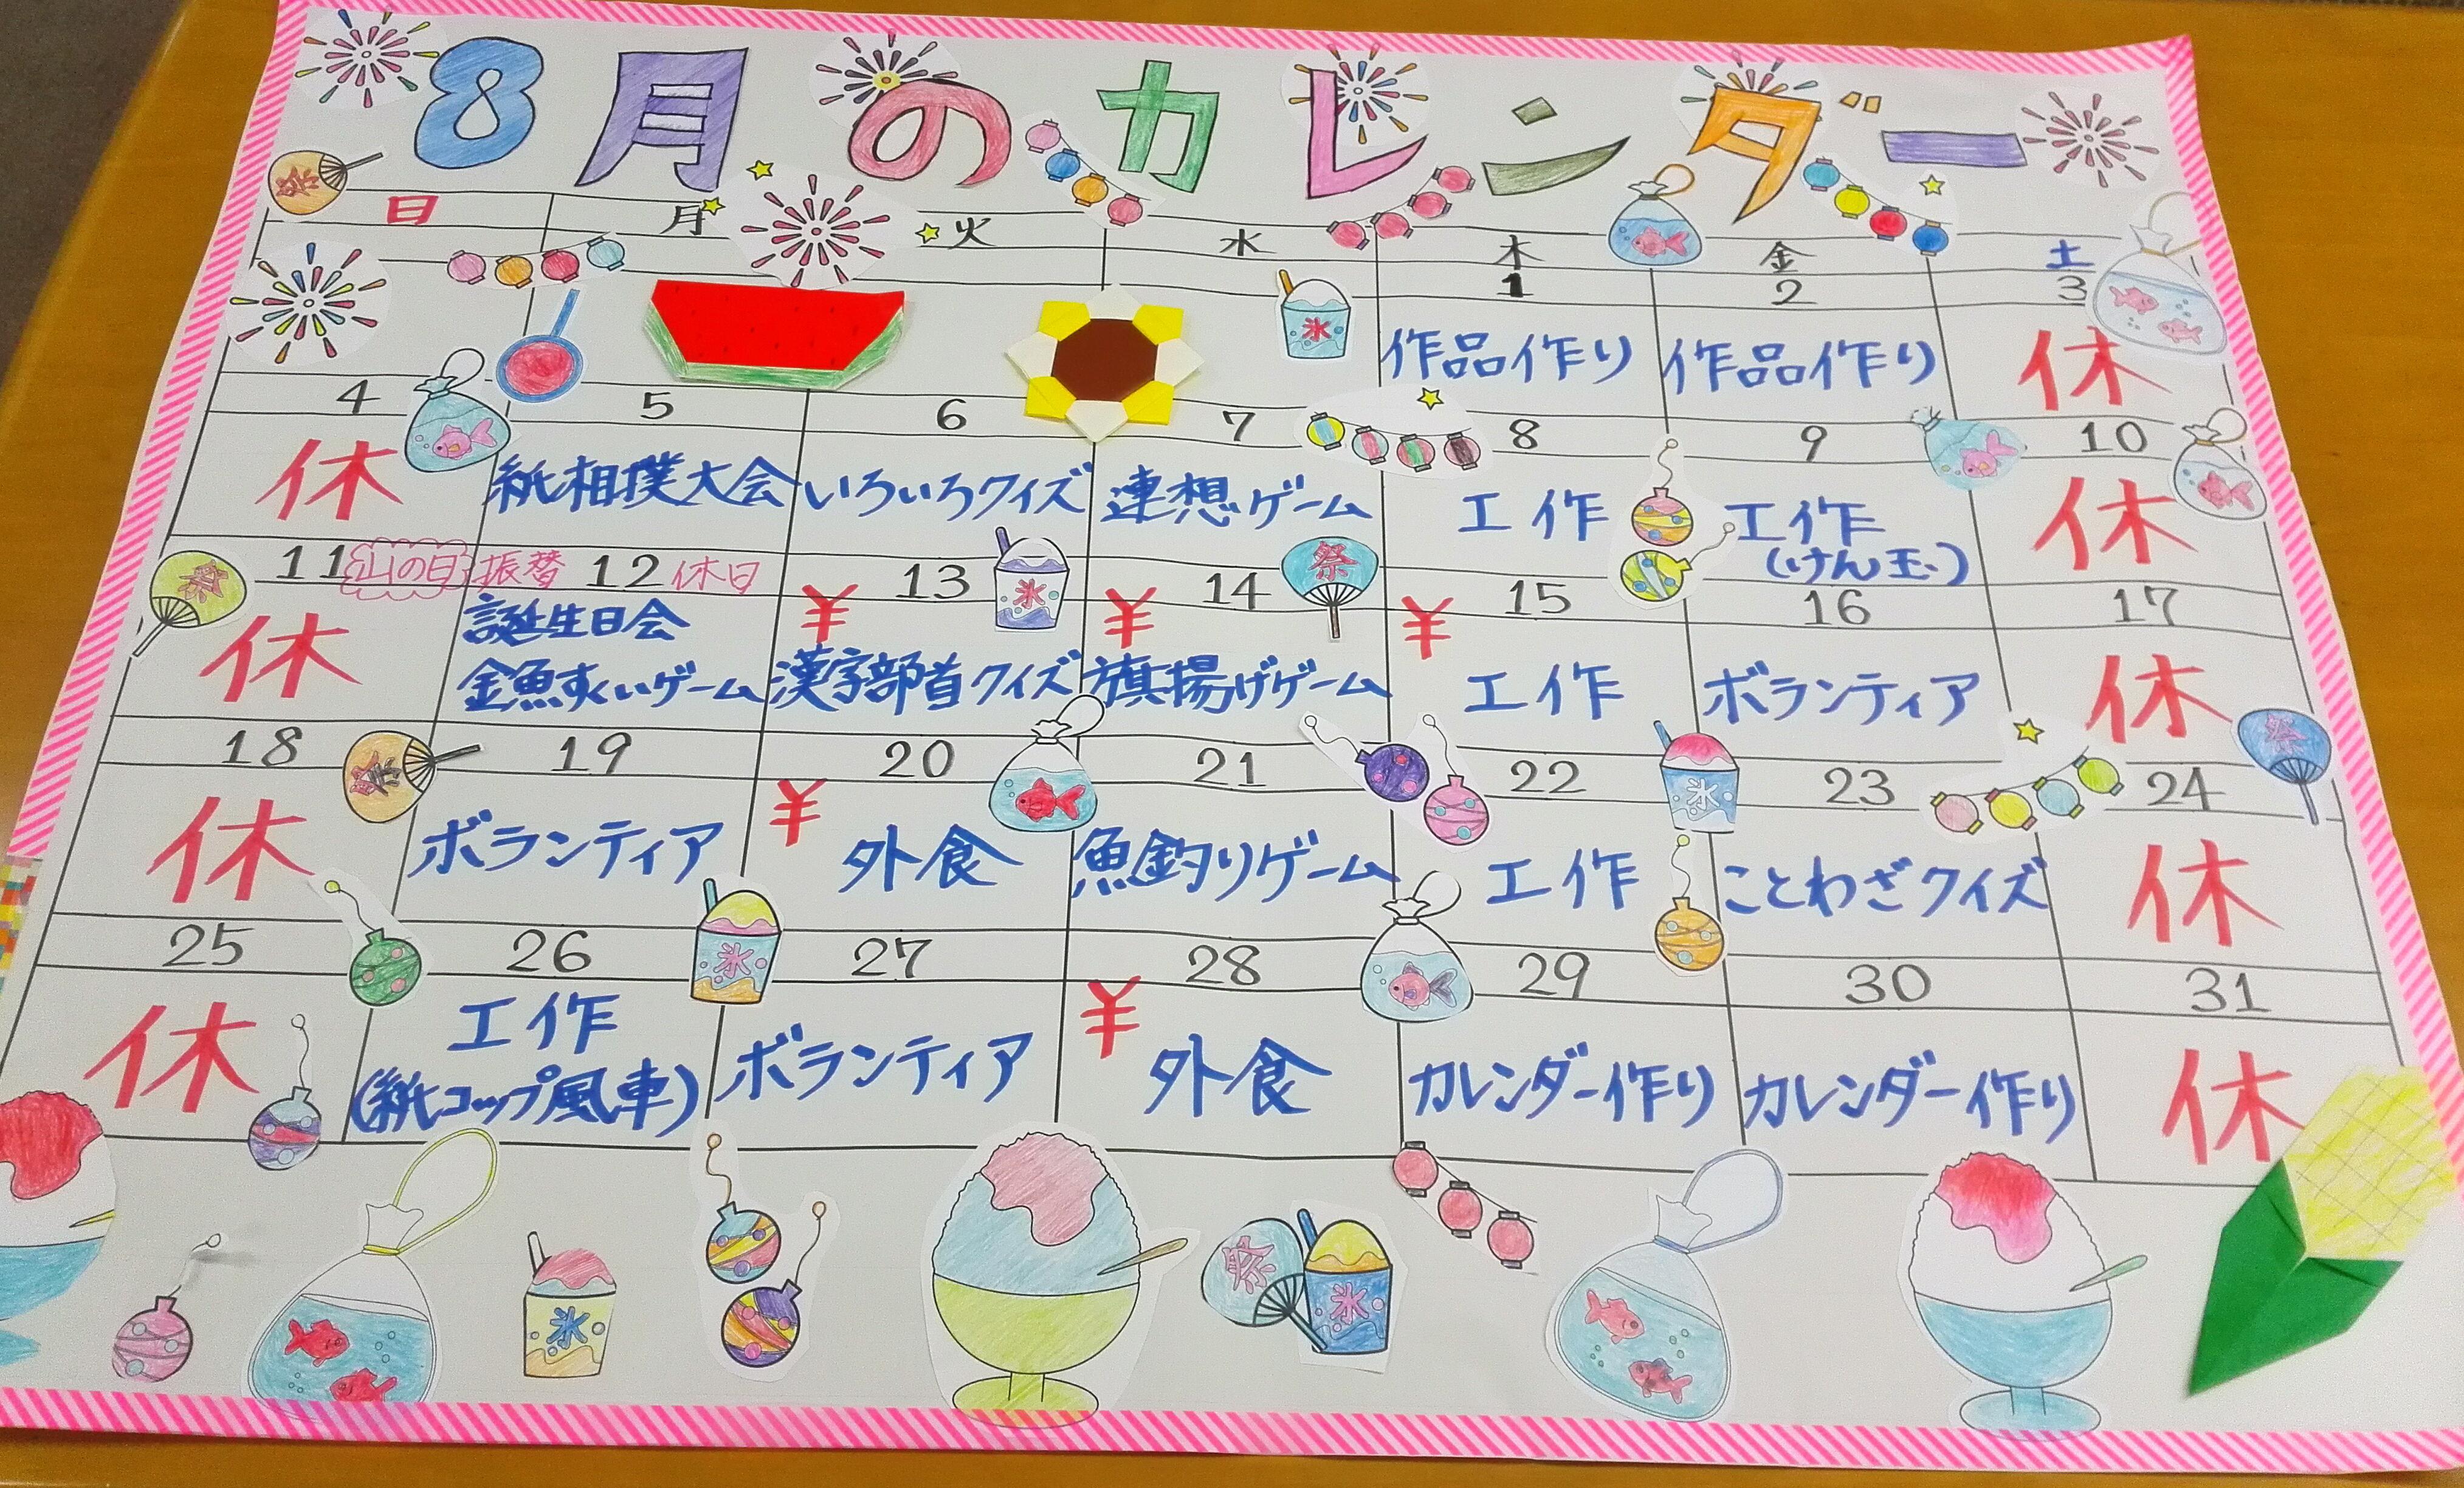 8月のカレンダー
日 月 火 水 木 金 土
1 2 3
作品作り 作品作り 休
4 5 6 7 8 9 10
休 紙相撲大会 いろいろクイズ 連想ゲーム 工作 工作 休
(けん玉)
11 山の日 振替 12 休日 13 14 15 16 17
休 誕生日会 ¥ ¥ ¥ 休
金魚すくいゲーム 漢字部首クイズ 旗揚げゲーム 工作 ボランティア
18 19 20 21 22 23 24
休 ボランティア ¥ 外食 魚釣りゲーム 工作 ことわざクイズ 休
25 26 27 28 29 30 31
休 工作 ボランティア ¥ 外食 カレンダー作り カレンダー作り 休
(紙コップ風車)
祭
祭
祭
祭
祭
祭
氷
氷
氷
氷
氷
氷